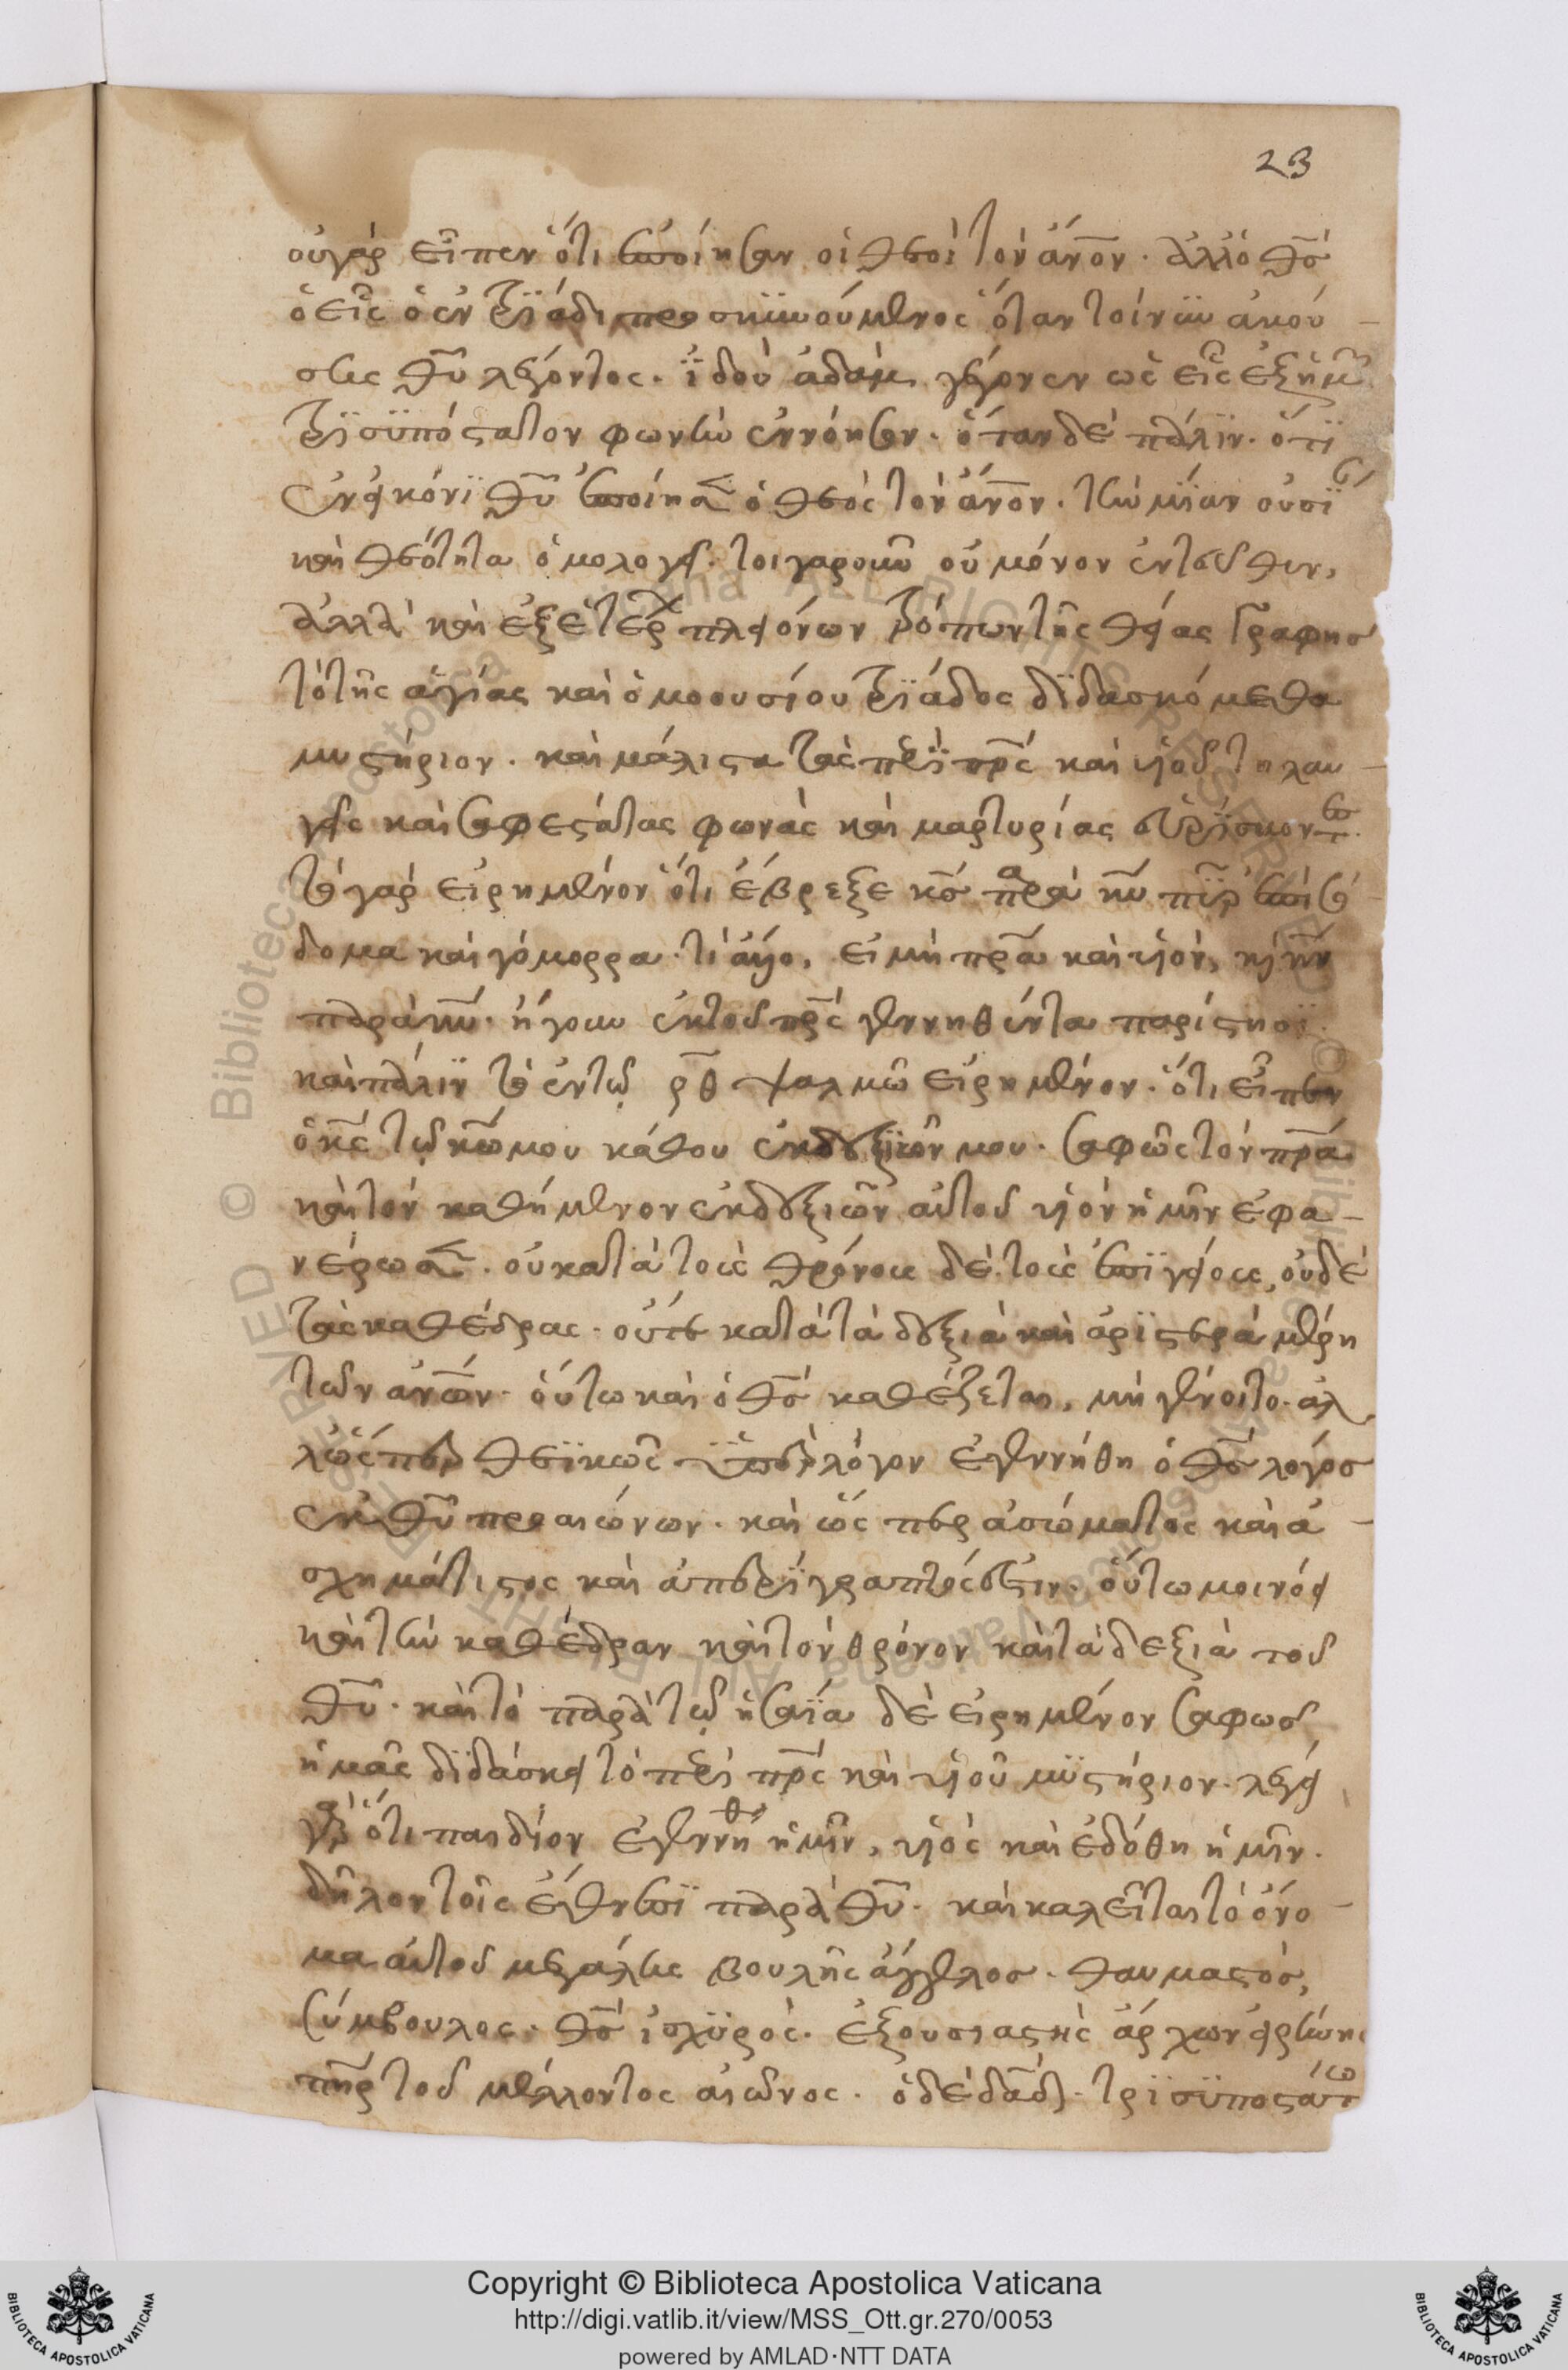 23
οὐ γὰρ εἶπεν ὅτι ἐποίησαν οἱ θεοὶ τὸν ἄνον. ἀλλ' ὁ θς
ὁ εἷς ὁ ἐν τριάδι προσκυνούμενος ὅταν τοίνυν ἀκού
σῃς θυ λέγοντος. ἰδοὺ ἀδὰμ γέγονεν ὡς εἷς ἐξ ἡμ
τρισυπόστατον φωνὴν ἐννόησον. ὅταν δὲ πάλιν. ὅτι
ἐν εἰκόνι θυ ἐποίησεν ὁ θεὸς τὸν ἄνον. τὴν μίαν οὐσί
καὶ θεότητα ὁμολογεῖ. τοιγαροῦν οὐ μόνον ἐντεῦθεν,
ἀλλὰ καὶ ἐξ ἑτέρ πλειόνων τρόπων τῆς θείας γραφῆς
τὸ τῆς ἁγίας καὶ ὁμοουσίου τριάδος διδασκόμεθα
μυστήριον. καὶ μάλιστα τὰς περὶ πρς καὶ υἱοῦ τηλαυ
γεῖς καὶ σαφεστάτας φωνὰς καὶ μαρτυρίας εὑρίσκοντ
τὸ γὰρ εἰρημένον ὅτι ἔβρεξε κς παρὰ κυ πῦρ ἐπὶ σό
δομα καὶ γόμορρα. τί ἄλλο, εἰ μὴ πρα καὶ υἱὸν, κν
παρὰ κυ. ἤγουν ἐκ τοῦ πρς γεννηθέντα παρίστησι.
καὶ πάλιν τὸ ἐν τῷ ρθ ψαλμῶ εἰρημένον. ὅτι εἶπεν
ὁ κς τῷ κω μου κάθου ἐκ δεξιῶν μου. σαφῶς τὸν πρα
καὶ τὸν καθήμενον ἐκ δεξιῶν αὐτοῦ υἱὸν ἡμῖν ἐφα
νέρωσεν. οὐ κατὰ τοὺς θρόνους δὲ τοὺς ἐπιγείους, οὐδὲ
τὰς καθέδρας. οὔτε κατὰ τὰ δεξιὰ καὶ ἀριστερὰ μέρη
τῶν ἀνων. οὕτω καὶ ὁ θς καθέζεται, μὴ γένοιτο. ἀλ
λ' ὥσπερ θεϊκῶς ὑπὲρ λόγον ἐγεννήθη ὁ θς λόγος
ἐκ θυ προ αἰώνων. καὶ ὥς περ ἀσώματος καὶ ἀ
σχημάτιστος καὶ ἀπερίγραπτός ἐστιν. οὕτω μοι νόει
καὶ τὴν καθέδραν καὶ τὸν θρόνον καὶ τὰ δεξιὰ τοῦ
θυ. καὶ τὸ παρὰ τῷ ἡσαΐα δὲ εἰρημένον σαφῶς
ἡμᾶς διδάσκει τὸ περὶ πρς καὶ υἱοῦ μυστήριον. λέγει
γὰρ ὅτι παιδίον ἐγεννήθη ἡμῖν, υἱὸς καὶ ἐδόθη ἡμῖν.
δῆλον τοῖς ἔθνεσι παρὰ θυ. καὶ καλεῖται τὸ ὄνο
μα αὐτοῦ μεγάλης βουλῆς ἄγγελος. θαυμαστὸς,
σύμβουλος. θς ἰσχυρὸς. ἐξουσιαστὴς ἄρχων εἰρήνης
πηρ τοῦ μέλλοντος αἰῶνος. ὁ δὲ δαδ. τρισυποστάτω
Copyright © Biblioteca Apostolica Vaticana
http://digi.vatlib.it/view/MSS_Ott.gr.270/0053
powered by AMLAD·NTT DATA